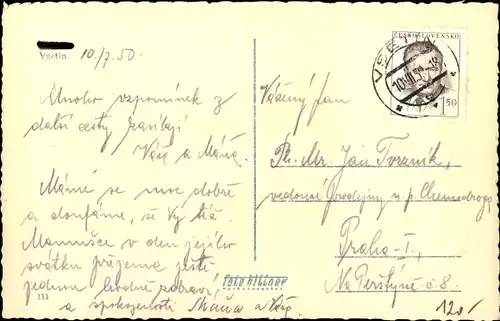 Vsetín. 10./7.50.
Mnoho vzpomínek z
další cesty zasílají
Váša a Máňa.
Máme se moc dobře
a doufáme, že Vy též.
Mamušce v den jejího
svátku přejeme ještě
jednou hodně zdraví,
a spokojenosti Máňa a Váša
111
foto bittner
ČESKOSLOVENSKO
1,50
VSETÍN
10.VII.50-18
Vážený pan
Ph. Mr. Jan Tvrzník,
vedoucí prodejny n. p. Chemodroga
Praha-I.,
Na Perštýně č. 8.